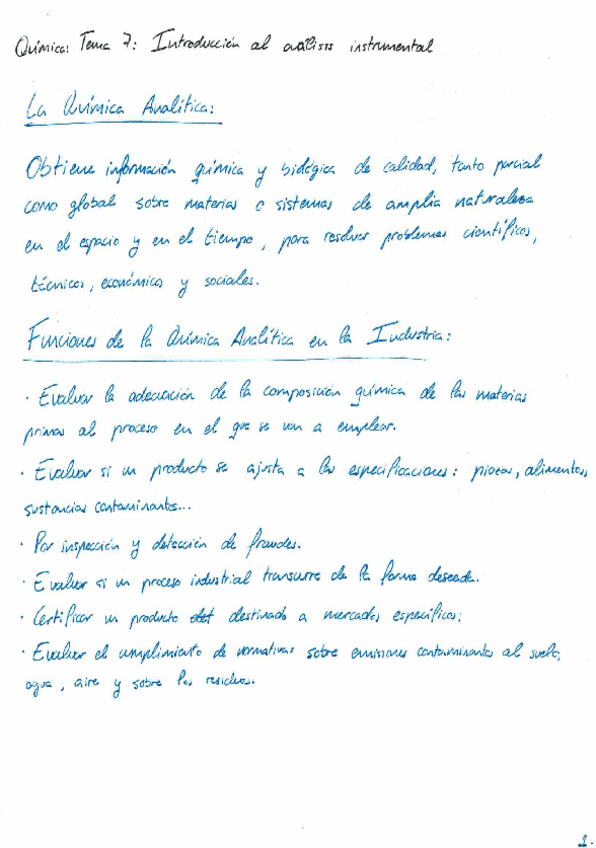 Química: Tema 7: Introducción al análisis instrumental
La Química Analítica:
Obtiene información química y biológica de calidad, tanto parcial
como global sobre materias o sistemas de amplia naturaleza
en el espacio y en el tiempo, para resolver problemas científicos,
técnicos, económicos y sociales.
Funciones de la Química Analítica en la Industria:
· Evaluar la adecuación de la composición química de las materias
primas al proceso en el que se van a emplear.
· Evaluar si un producto se ajusta a las especificaciones: piezas, alimentos,
sustancias contaminantes...
· Por inspección y detección de fraudes.
· Evaluar si un proceso industrial transcurre de la forma deseada.
· Certificar un producto det destinado a mercados específicos.
· Evaluar el cumplimiento de normativas sobre emisiones contaminantes al suelo,
agua, aire y sobre los residuos.
1.